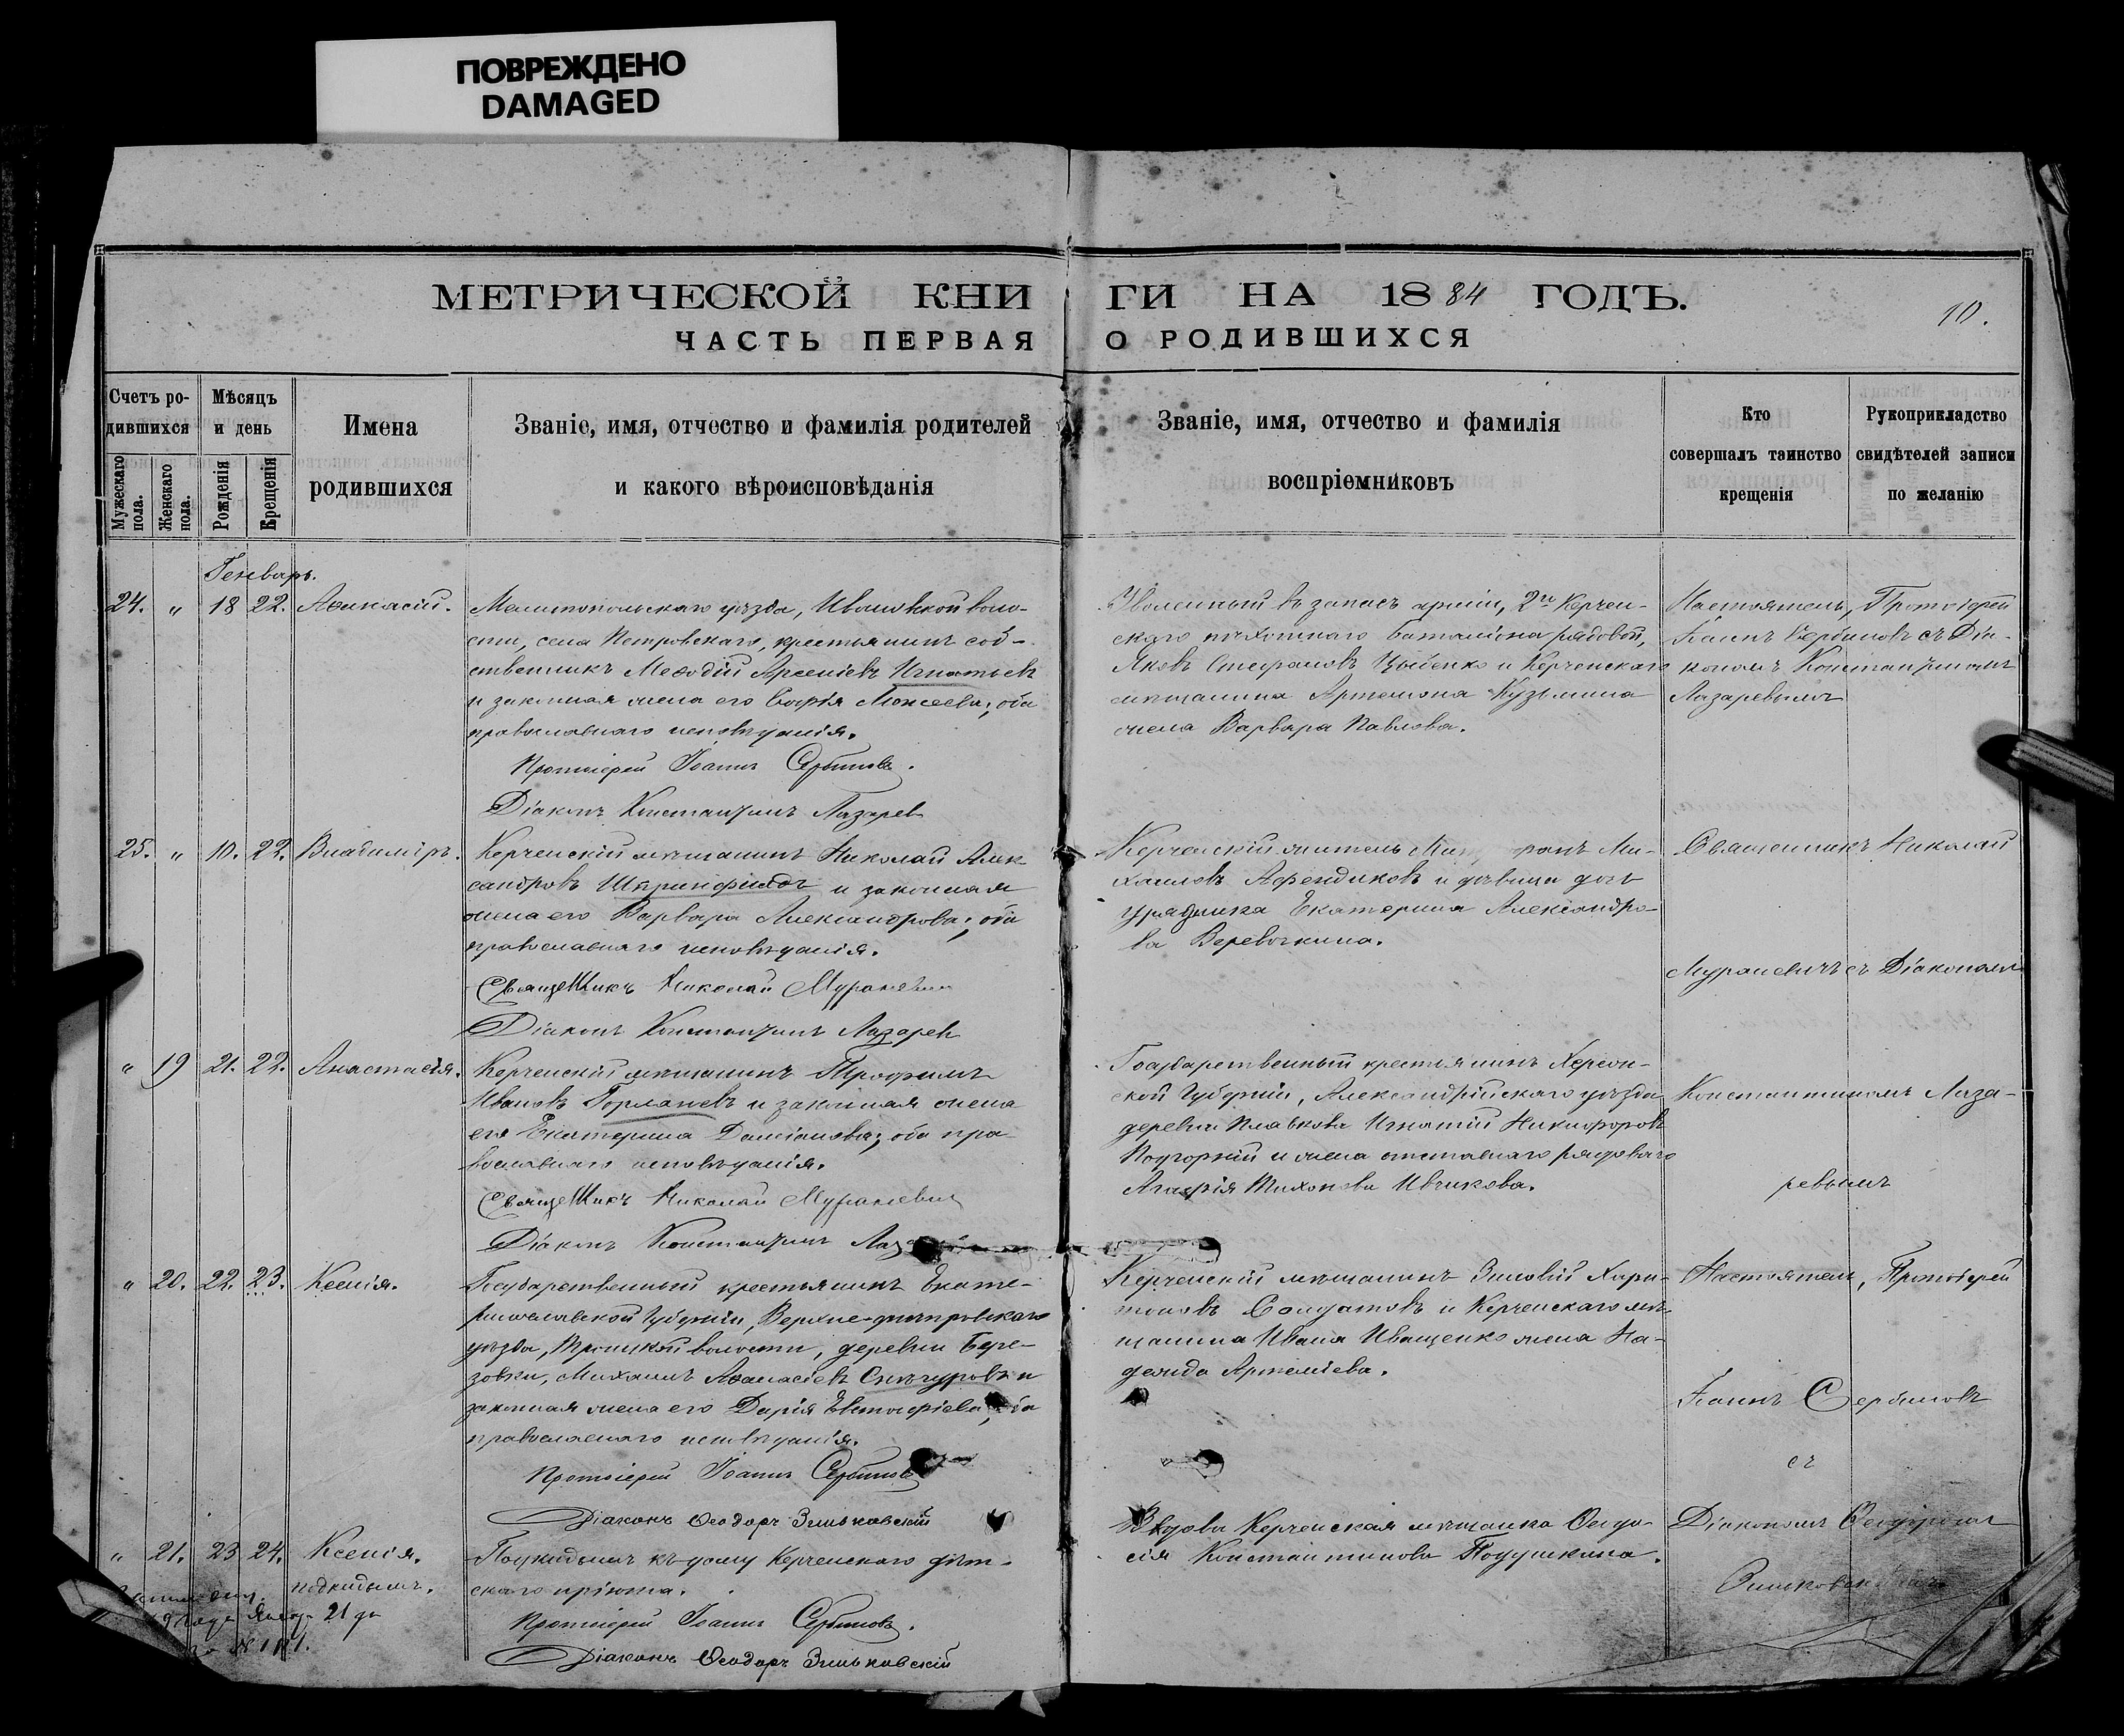 ПОВРЕЖДЕНО
DAMAGED
МЕТРИЧЕСКОЙ КНИГИ НА 1884 ГОДЪ.
10.
ЧАСТЬ ПЕРВАЯ О РОДИВШИХСЯ
Счетъ ро-
дившихся
Мужескаго пола.
Женскаго пола.
Мѣсяцъ
и день
Рожденія
Крещенія
Имена
родившихся
Званіе, имя, отчество и фамилія родителей
и какого вѣроисповѣданія
Званіе, имя, отчество и фамилія
воспріемниковъ
Кто
совершалъ таинство
крещенія
Рукоприкладство
свидѣтелей записи
по желанію
Генварь.
24. " 18 22. Аѳанасій.
Мелитопольскаго уѣзда, воло-
сти, села Петровскаго, крестьянинъ соб-
ственникъ Меѳодій Арсеніевъ Игнатьевъ
и законная жена его Софія Моисеева; оба
православнаго исповѣданія.
Протоіерей Іоаннъ Сербиновъ.
Діаконъ Константинъ Лазарев
Уволенный въ запасъ арміи, 2го Керчен-
скаго пѣхотнаго баталіона рядовой,
Яковъ Стефановъ Цыбенко и Керченскаго
мѣщанина Артемона Кузьмина
жена Варвара Павлова.
Настоятель, Протоіерей
Іоаннъ Сербиновъ съ Діа-
кономъ Константиномъ
Лазаревымъ
25. " 10. 22. Владиміръ.
Керченскій мѣщанинъ Николай Алек
сандровъ и законная
жена его Варвара Александрова; оба
православнаго исповѣданія.
Священникъ Николай Мураневич
Діаконъ Константинъ Лазарев
Керченскій житель Ми-
хаиловъ Афендиковъ и дѣвица дочь
урядника Екатерина Александро-
ва Веревочкина.
Священникъ Николай
Мураневичъ съ Діакономъ
" 19 21. 22. Анастасія.
Керченскій мѣщанинъ Трофимъ
Ивановъ Горлачевъ и законная жена
его Екатерина Даміанова; оба пра-
вославнаго исповѣданія.
Священникъ Николай Мураневич
Діаконъ Константинъ
Государственный крестьянинъ Херсон-
ской Губерніи, Александрійскаго уѣзда
деревни Плавкова Игнатій Никифоровъ
Подгорній и жена отставнаго рядоваго
Агафія Тихонова Ивчикова.
Константиномъ Лаза-
ревымъ
" 20. 22. 23. Ксенія.
Государственный крестьянинъ Екате-
ринославской Губерніи, Верхне-днѣпровскаго
уѣзда, Троицкой волости, деревни Бере-
зовки, Михаилъ Аѳанасіевъ и
законная жена его Дарія Евстафіева; оба
православнаго исповѣданія.
Протоіерей Іоаннъ Сербинов
Діаконъ Ѳеодоръ Зиньковскій
Керченскій мѣщанинъ Зиновій Хари-
тоновъ Солдатовъ и Керченскаго мѣ-
щанина Ивана Иващенко жена На-
дежда Артеміева.
Настоятель, Протоіерей
Іоаннъ Сербиновъ
съ
" 21. 23 24. Ксенія.
подкидышъ.
Подкидышъ къ дому Керченскаго дѣт-
скаго пріюта.
Протоіерей Іоаннъ Сербиновъ.
Діаконъ Ѳеодоръ Зиньковскій
Вдова Керченская мѣщанка Ѳеодо-
сія Константинова Подушкина.
Діакономъ Ѳеодоромъ
21